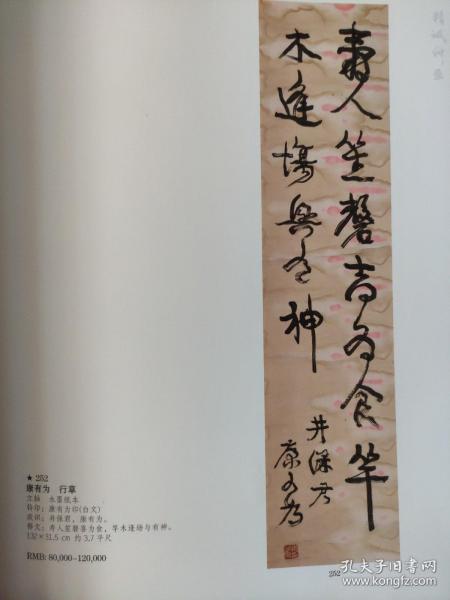 壽人笙磬吉为食竿
木逢場與有神
井保君
康有为
★ 252
康有为 行草
立轴 水墨纸本
钤印:康有为印(白文)
款识:井保君,康有为。
释文:寿人笙磬喜为食,竿木逢场与有神。
132×31.5 cm 约 3.7 平尺
RMB: 80,000–120,000
252
孔夫子旧书网